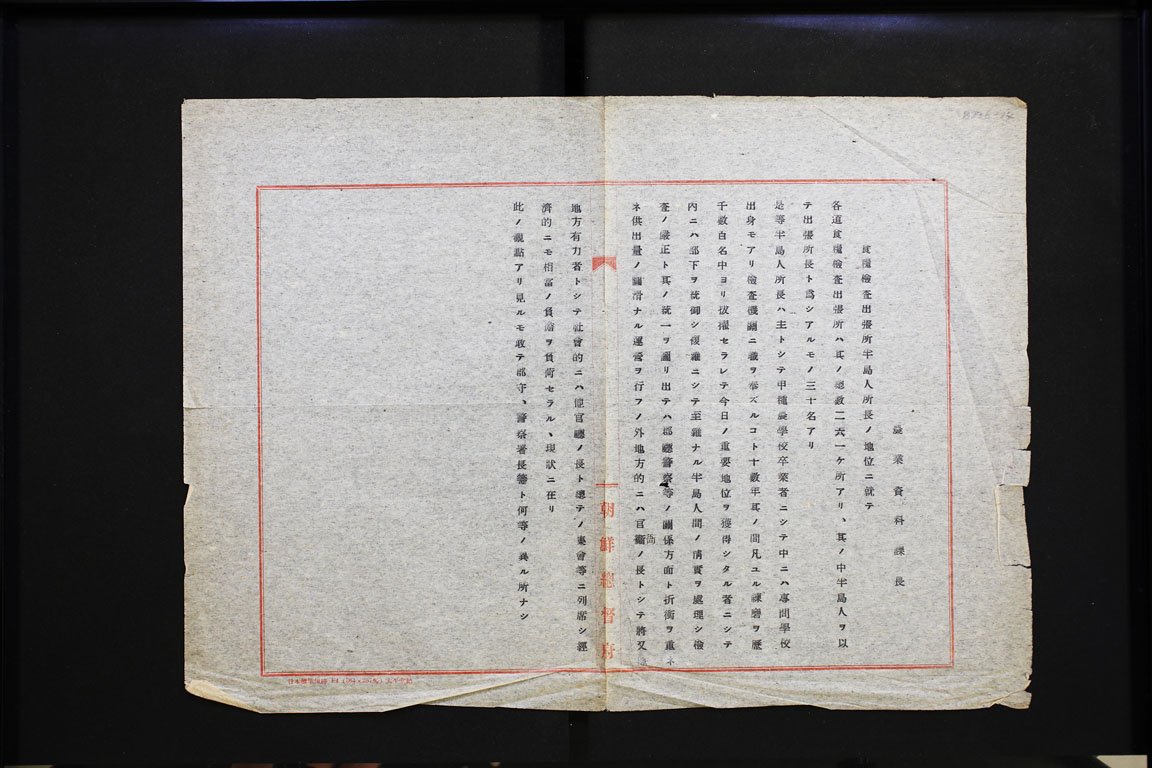 農業資料課長
食糧檢査出張所半島人所長ノ地位ニ就テ
各道食糧檢査出張所ハ其ノ總數二六一ケ所アリ、其ノ中半島人ヲ以
テ出張所長ト爲シアルモノ三十名アリ
是等半島人所長ハ主トシテ甲種農學校卒業者ニシテ中ニハ專門學校
出身モアリ檢査機關ニ職ヲ奉ズルコト十數年其ノ間凡ユル練磨ヲ歷
千數百名中ヨリ拔擢セラレテ今日ノ重要地位ヲ獲得シタル者ニシテ
內ニハ部下ヲ統御シ複雜ニシテ至難ナル半島人間ノ情實ヲ處理シ檢
査ノ嚴正ト其ノ統一ヲ圖リ出テハ郡廳警察等ノ關係方面ト折衝ヲ重
ネ供出量ノ圓滑ナル運營ヲ行フノ外地方的ニハ官衙ノ長トシテ將又
地方有力者トシテ社會的ニハ他官廳ノ長ト總テノ集會等ニ列席シ經
濟的ニモ相當ノ負擔ヲ負荷セラルヽ現狀ニ在リ
此ノ觀點アリ見ルモ敢テ郡守、警察署長等ト何等ノ異ル所ナシ
朝鮮總督府